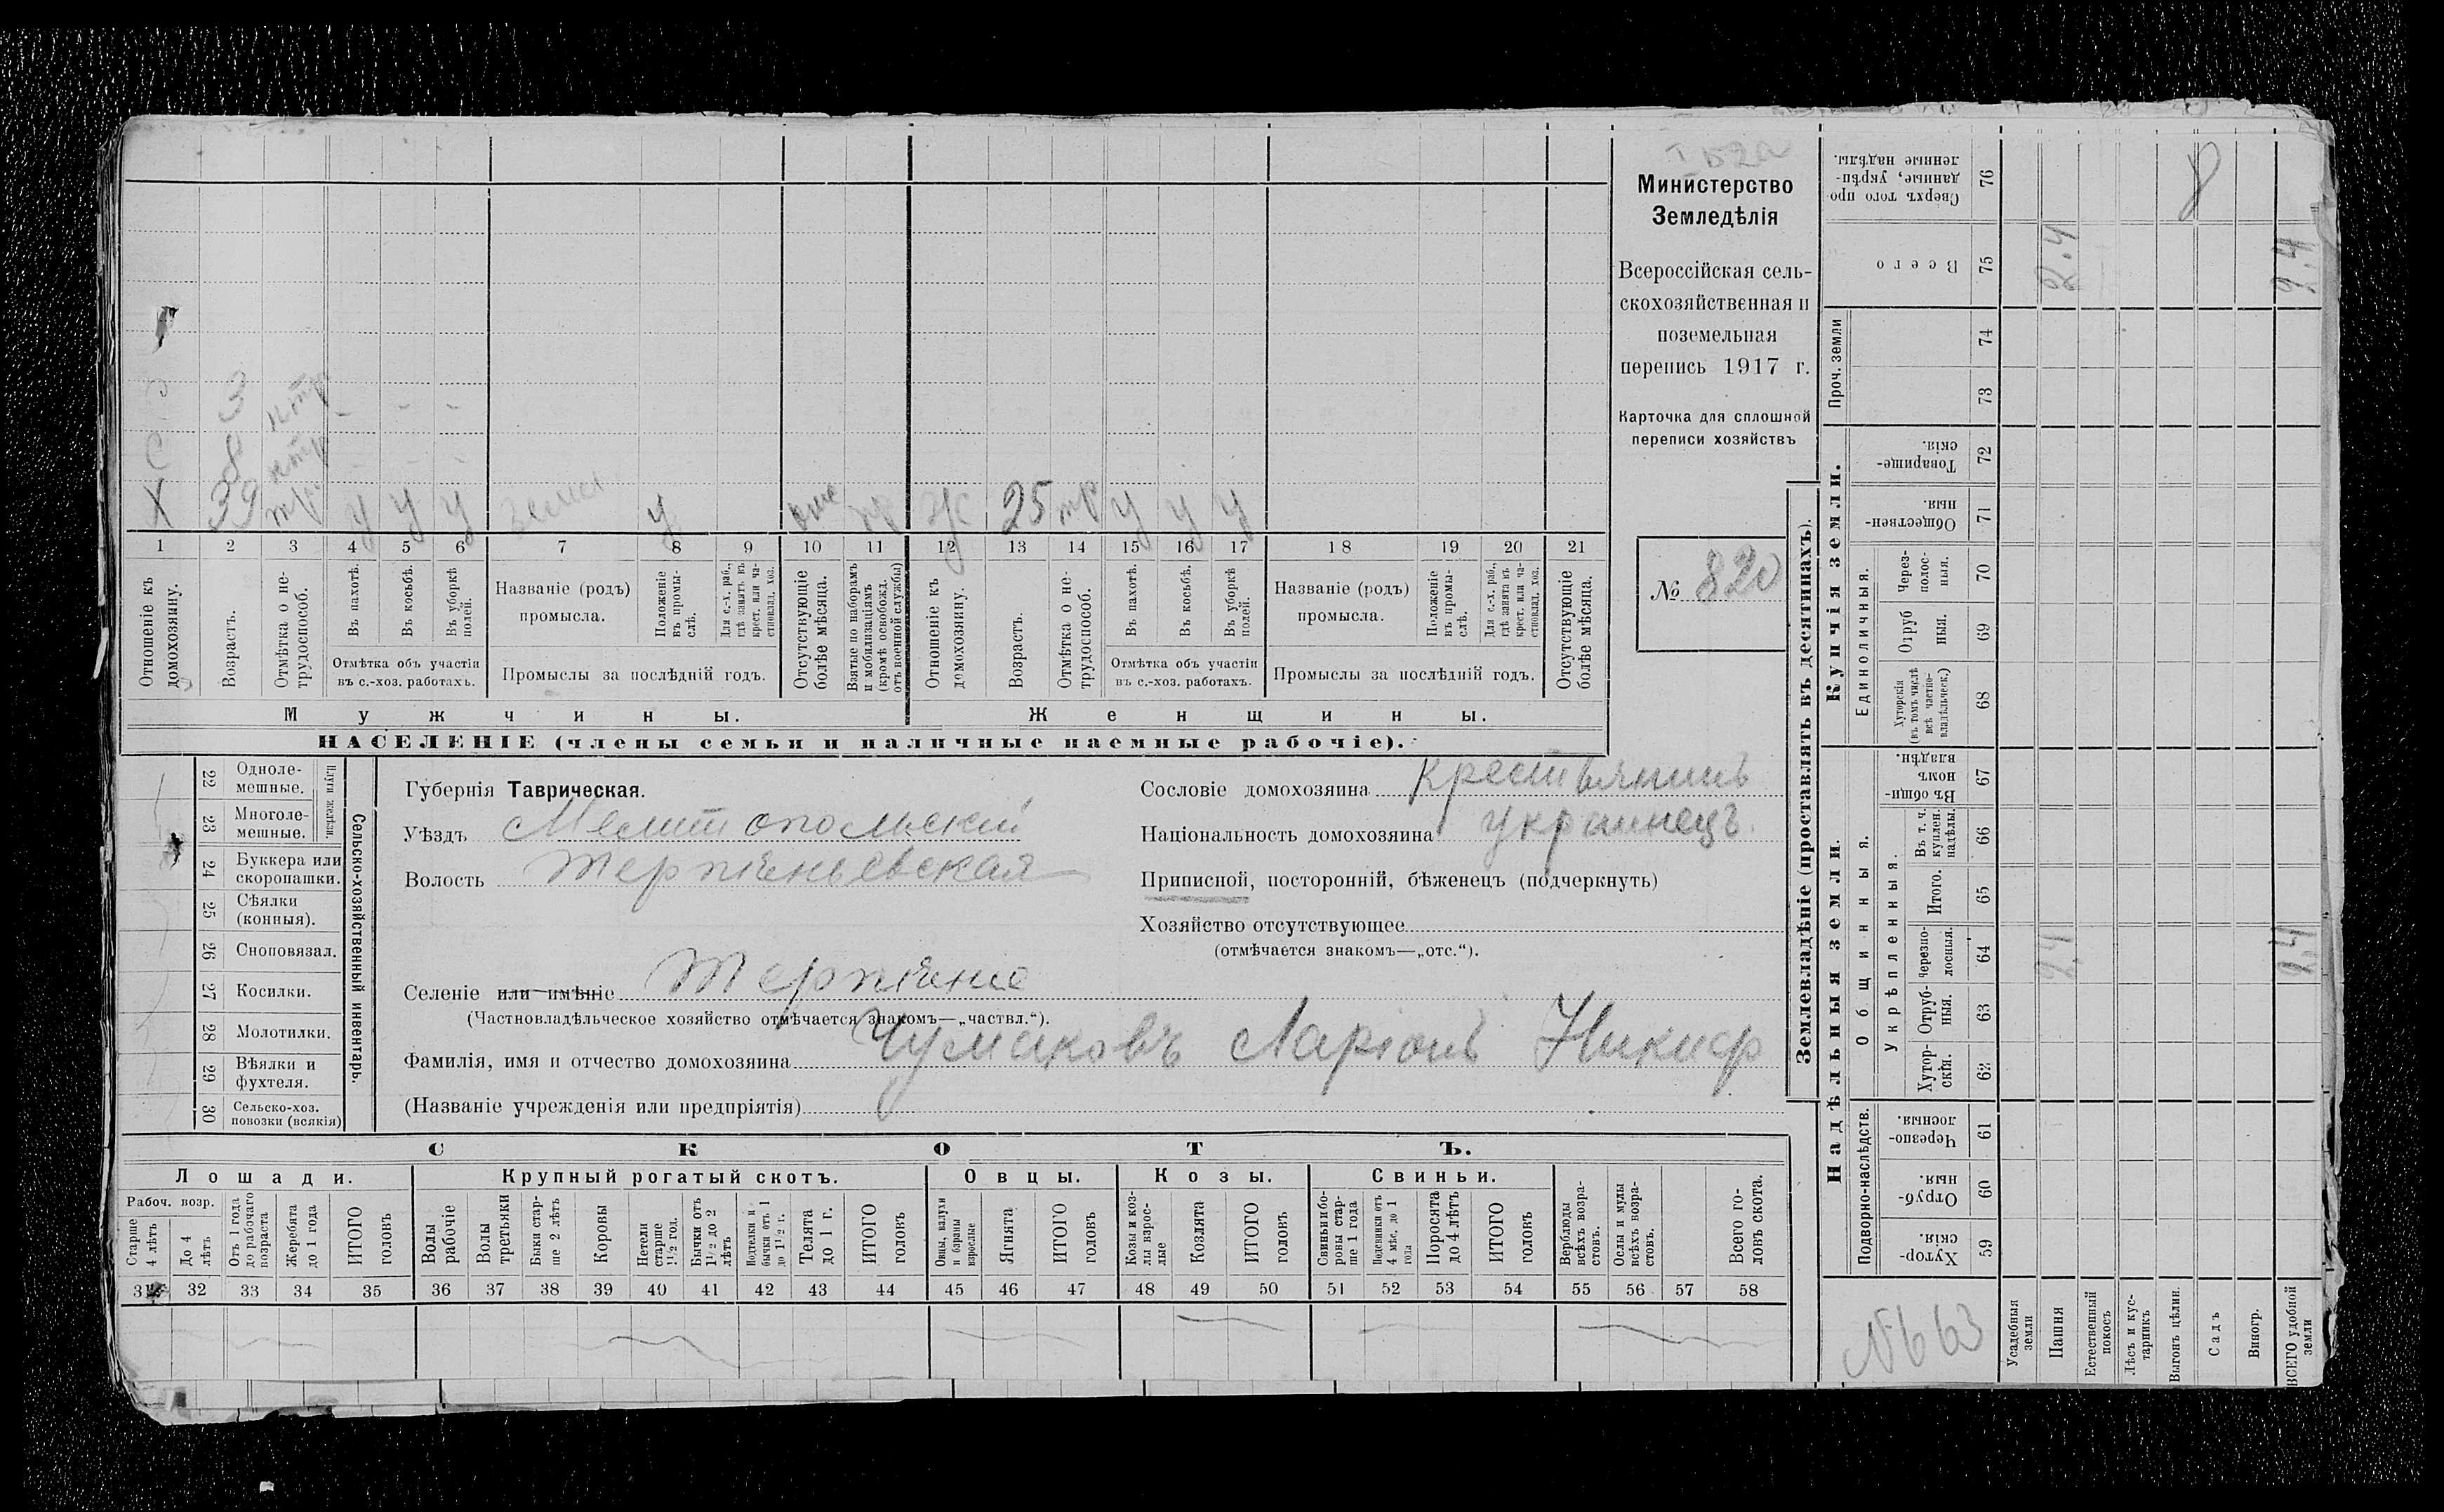 Министерство
Земледѣлія
Всероссійская сель-
скохозяйственная и
поземельная
перепись 1917 г.
Карточка для сплошной
переписи хозяйствъ
№ 820
3 нтр - - -
С 8 нтр - - -
Х 39 тр у у у земл у отс пр ж 25 тр у у у
1 2 3 4 5 6 7 8 9 10 11 12 13 14 15 16 17 18 19 20 21
Отношеніе къ домохозяину.
Возрастъ.
Отмѣтка о не-трудоспособ.
Въ пахотѣ.
Въ косьбѣ.
Въ уборкѣ полей.
Отмѣтка объ участіи
въ с.-хоз. работахъ.
Названіе (родъ)
промысла.
Положеніе въ промы-слѣ.
Для с.-х. раб., гдѣ занятъ въ крест. или ча-стновлад. хоз.
Промыслы за послѣдній годъ.
Отсутствующіе болѣе мѣсяца.
Взятые по наборамъ и мобилизаціямъ (кромѣ освобожд. отъ военной службы)
Отношеніе къ домохозяину.
Возрастъ.
Отмѣтка о не-трудоспособ.
Въ пахотѣ.
Въ косьбѣ.
Въ уборкѣ полей.
Отмѣтка объ участіи
въ с.-хоз. работахъ.
Названіе (родъ)
промысла.
Положеніе въ промы-слѣ.
Для с.-х. раб., гдѣ занята въ крест. или ча-стновлад. хоз.
Промыслы за послѣдній годъ.
Отсутствующіе болѣе мѣсяца.
Мужчины.
Женщины.
НАСЕЛЕНІЕ (члены семьи и наличные наемные рабочіе).
Сельско-хозяйственный инвентарь.
Плуги желѣзн.
22 Одноле-мешные.
23 Многоле-мешные.
24 Буккера или скоропашки.
25 Сѣялки (конныя).
26 Сноповязал.
27 Косилки.
28 Молотилки.
29 Вѣялки и фухтеля.
30 Сельско-хоз. повозки (всякія)
Губернія Таврическая.
Уѣздъ Мелитопольскій
Волость Терпѣньевская
Селеніе или имѣніе Терпѣніе
(Частновладѣльческое хозяйство отмѣчается знакомъ—„частвл.“).
Фамилія, имя и отчество домохозяина Чумаковъ Ларіонъ Никиф
(Названіе учрежденія или предпріятія)
Сословіе домохозяина крестьянинъ
Національность домохозяина украинецъ.
Приписной, посторонній, бѣженецъ (подчеркнуть)
Хозяйство отсутствующее
(отмѣчается знакомъ—„отс.“).
СКОТЪ.
Лошади.
Крупный рогатый скотъ.
Овцы.
Козы.
Свиньи.
Рабоч. возр.
Старше 4 лѣтъ
До 4 лѣтъ
Отъ 1 года до рабочаго возраста
Жеребята до 1 года
ИТОГО головъ
Волы рабочіе
Волы третьяки
Быки стар-ше 2 лѣтъ
Коровы
Нетели старше 1½ год.
Бычки отъ 1½ до 2 лѣтъ
Подтелки и бычки отъ 1 до 1½ г.
Телята до 1 г.
ИТОГО головъ
Овцы, валухи и бараны взрослые
Ягнята
ИТОГО головъ
Козы и коз-лы взрос-лые
Козлята
ИТОГО головъ
Свиньи и бо-ровы стар-ше 1 года
Подсвинки отъ 4 мѣс. до 1 года
Поросята до 4 лѣтъ
ИТОГО головъ
Верблюды всѣхъ возра-стовъ.
Ослы и мулы всѣхъ возра-стовъ.
Всего го-ловъ скота.
31 32 33 34 35 36 37 38 39 40 41 42 43 44 45 46 47 48 49 50 51 52 53 54 55 56 57 58
Землевладѣніе (проставлять въ десятинахъ).
Надѣльныя земли.
Купчія земли.
Проч. земли
Подворно-наслѣдств.
Общинныя.
Укрѣпленныя.
Единоличныя.
76 Сверхъ того про-данные, укрѣп-ленные надѣлы. 8
75 Всего 2.4 2.4
74
73
72 Товарище-скія.
71 Обществен-ныя.
70 Через-полос-ныя.
69 Отруб ныя.
68 Хуторскія (въ томъ числѣ всѣ частно-владѣльческ.)
67 Въ общи-номъ владѣн.
66 Въ т. ч. куплен. надѣлы.
65 Итого.
64 Черезпо-лосныя. 2.4 2.4
63 Отруб-ныя.
62 Хутор-скія.
61 Черезпо-лосныя.
60 Отруб-ныя.
59 Хутор-скія.
№ 663
Усадебныя земли
Пашня
Естественный покосъ
Лѣсъ и кус-тарникъ
Выгонъ цѣлин.
Садъ
Виногр.
ВСЕГО удобной земли